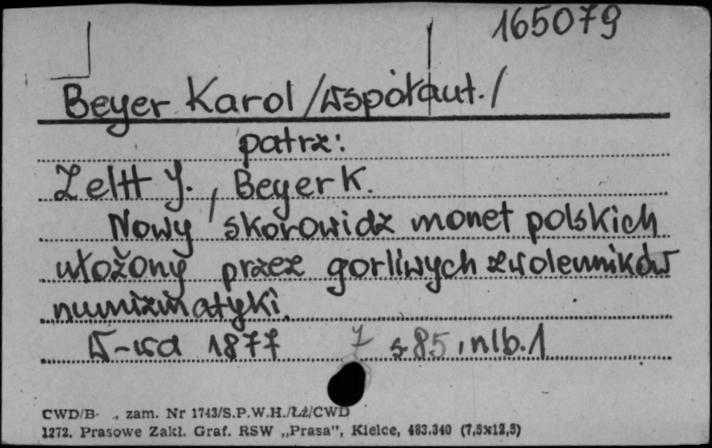 165079
Beyer Karol /współaut./
patrz:
Zelt J., Beyer K.
Nowy skorowidz monet polskich
ułożony przez gorliwych zwolenników
numizmatyki.
W-wa 1877 7 s. 85, nlb. 1
CWD/B- ., zam. Nr 1743/S.P.W.H./Łż/CWD
1272. Prasowe Zakł. Graf. RSW „Prasa", Kielce, 483.340 (7,5x12,5)